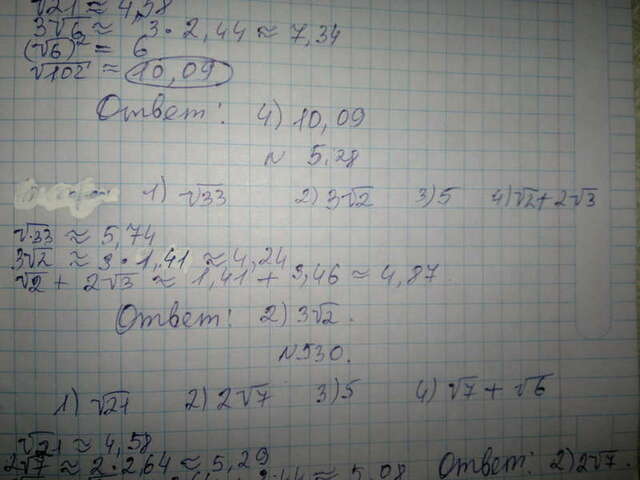 √21 ≈ 4,58
3√6 ≈ 3 · 2,44 ≈ 7,34
(√6)² = 6
√102 ≈ 10,09
Ответ: 4) 10,09
N 5.28
1) √33 2) 3√2 3) 5 4) √2 + 2√3
√33 ≈ 5,74
3√2 ≈ 3 · 1,41 ≈ 4,24
√2 + 2√3 ≈ 1,41 + 3,46 ≈ 4,87
Ответ: 2) 3√2.
N 530.
1) √21 2) 2√7 3) 5 4) √7 + √6
√21 ≈ 4,58
2√7 ≈ 2 · 2,64 ≈ 5,29
Ответ: 2) 2√7.
≈ 5,08